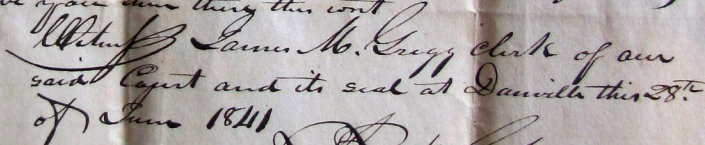 you then there this writ
Witness James M. Gregg clerk of our
said Court and its seal at Danville this 28th
of June 1841